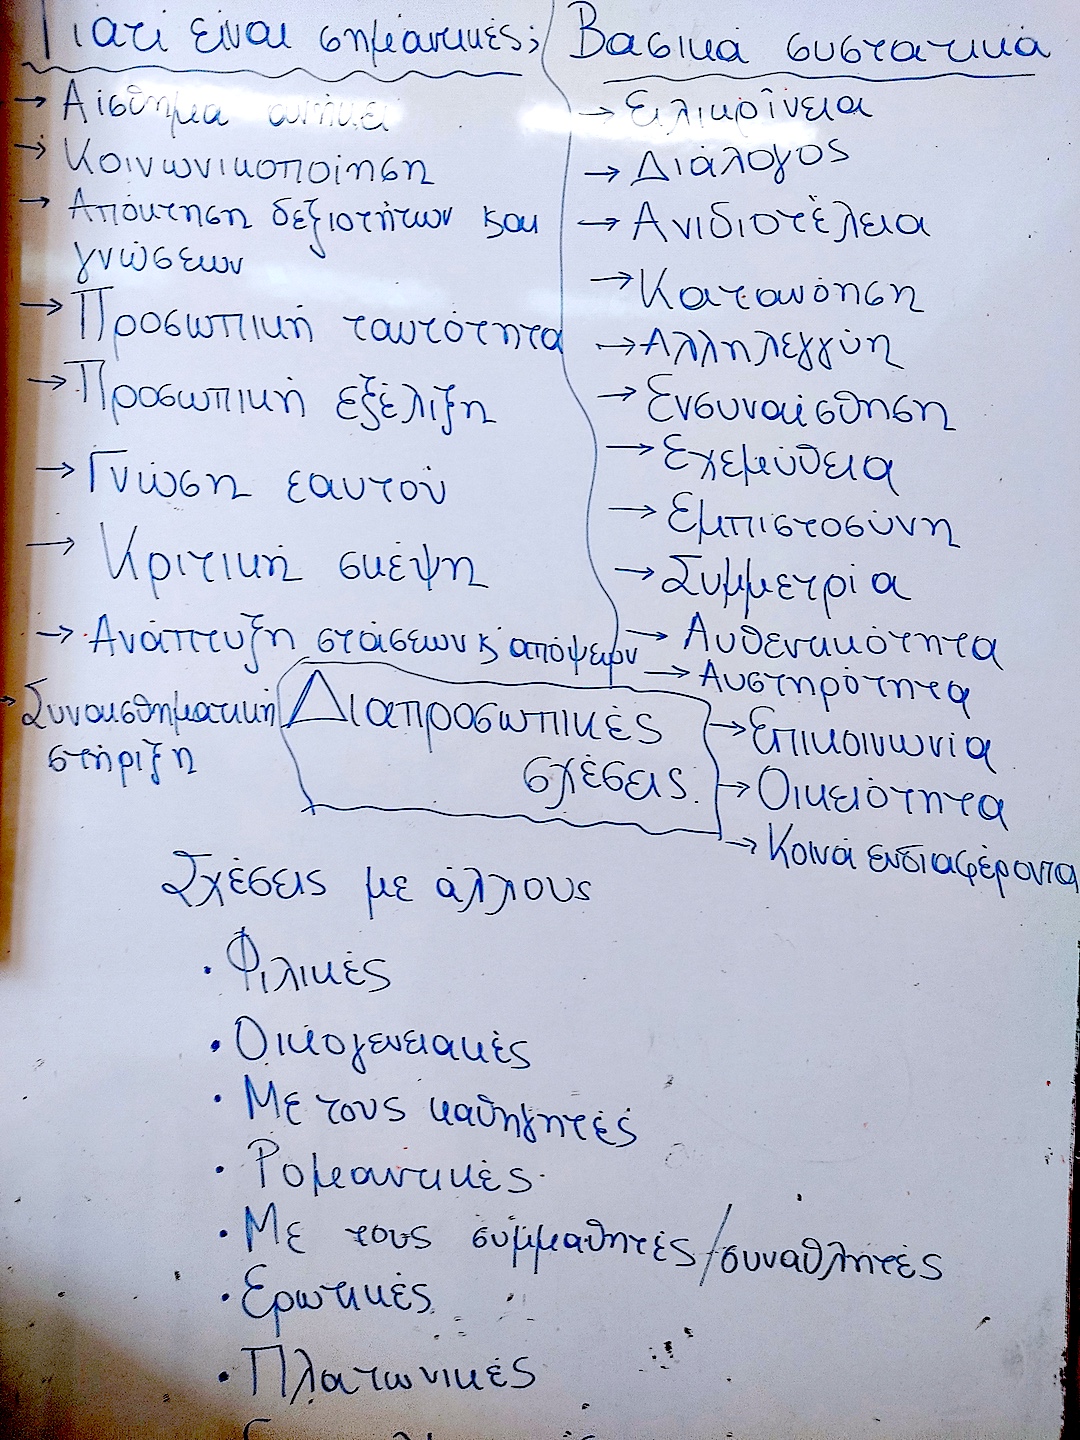 Γιατί είναι σημαντικές;
→ Αίσθημα ανήκει
→ Κοινωνικοποίηση
→ Απόκτηση δεξιοτήτων και
γνώσεων
→ Προσωπική ταυτότητα
→ Προσωπική εξέλιξη
→ Γνώση εαυτού
→ Κριτική σκέψη
→ Ανάπτυξη στάσεων κ' απόψεων
→ Συναισθηματική
στήριξη
Βασικά συστατικά
→ Ειλικρίνεια
→ Διάλογος
→ Ανιδιοτέλεια
→ Κατανόηση
→ Αλληλεγγύη
→ Ενσυναίσθηση
→ Εχεμύθεια
→ Εμπιστοσύνη
→ Συμμετρία
→ Αυθεντικότητα
→ Αυστηρότητα
→ Επικοινωνία
→ Οικειότητα
→ Κοινά ενδιαφέροντα
Διαπροσωπικές
σχέσεις
Σχέσεις με άλλους
• Φιλικές
• Οικογενειακές
• Με τους καθηγητές
• Ρομαντικές
• Με τους συμμαθητές/συναθλητές
• Ερωτικές
• Πλατωνικές